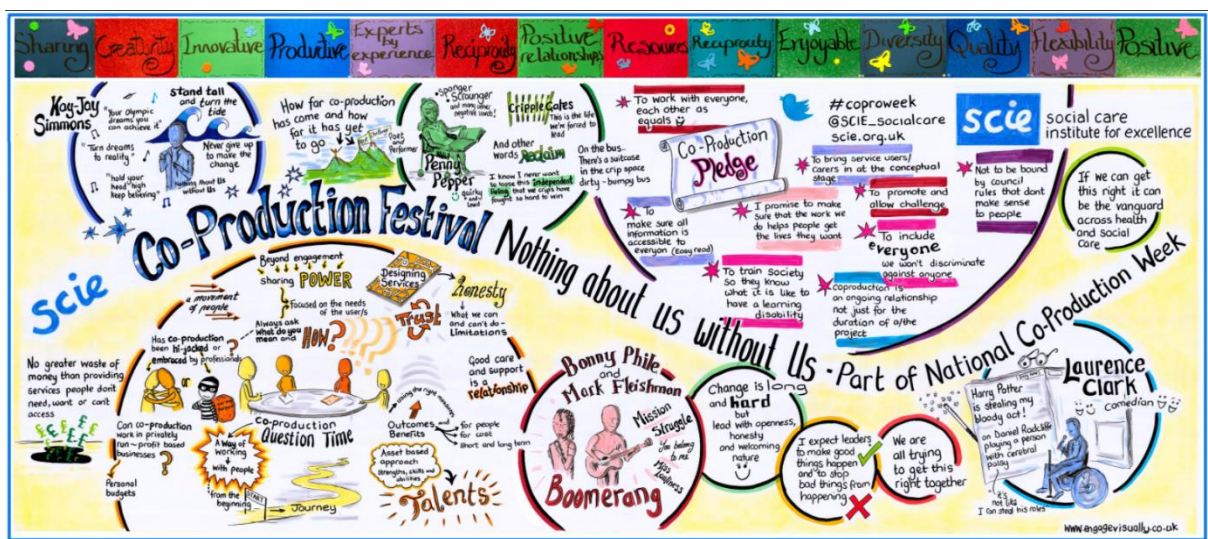 Sharing
Creativity
Innovative
Productive
Experts
by
experience
Reciprocity
Positive
relationships
Resources
Reciprocity
Enjoyable
Diversity
Quality
Flexibility
Positive
Kay-Joy
Simmons
"Your Olympic
dreams you
can achieve it"
"Turn dreams
to reality"
"hold your
head high
keep believing"
Stand tall
and turn the
tide
Never give up
to make the
change
Nothing About us
without us
How far co-production
has come and how
far it has yet
to go
Poet
and
Performer
Sponger
Scrounger
and many other
negative words!
Penny
Pepper
quirky
and
loud
Cripple Gates
This is the life
we're forced to
lead
And other
words Reclaim
I know I never want
to loose this Independent
living that we crips have
fought so hard to win!
On the bus...
There's a suitcase
in the crip space
dirty - bumpy bus
To work with everyone,
each other as
equals
Co-Production
Pledge
#coproweek
@SCIE_socialcare
scie.org.uk
scie
social care
institute for excellence
To bring service users/
carers in at the conceptual
stage
To promote and
allow challenge
Not to be bound
by council
rules that dont
make sense
to people
To
make sure all
information is
accessible to
everyon (Easy read)
I promise to make
sure that the work we
do helps people get
the lives they want
To include
everyone
we won't discriminate
against anyone
To train society
So they know
what it is like to
have a learning
disability
coproduction is
an ongoing relationship
not just for the
duration of a/the
project
If we can get
this right it can
be the vanguard
across health
and social
care
Co-Production Festival Nothing about us without Us - Part of National Co-Production Week
scie
Beyond engagement
sharing POWER
a movement
of people
Focused on the needs
of the user/s
Always ask
What do you
mean and HOW?
Designing
Services
Trust
Honesty
What we can
and can't do -
Limitations
Has co-production
been hi-jacked or
embraced by professionals
?
or
Good care
and support
is a
relationship
No greater waste of
money than providing
services people don't
need, want or cant
access
Can co-production
work in privately
run - profit based
businesses
?
Personal
budgets
co-production
Question Time
A way of
working
with people
from the
beginning
START
Journey
Outcomes
Benefits
for people
for cost
Short and long term
Asset based
approach
strengths, skills and
abilities
Talents
Bonny Phile
and
Mark Fleishman
Mission
Struggle
You belong
to me
Miss
Boomerang
Change is long
and hard
but
lead with openness,
honesty
and welcoming
nature
I expect leaders
to make good
things happen
and to stop
bad things from
happening
We are
all trying
to get this
right together
Harry Potter
is stealing my
bloody act!
on Daniel Radcliffe
playing a person
with cerebral
palsy
it's
not like
I can steal his roles
Laurence
Clark
comedian
www.engagevisually.co.uk